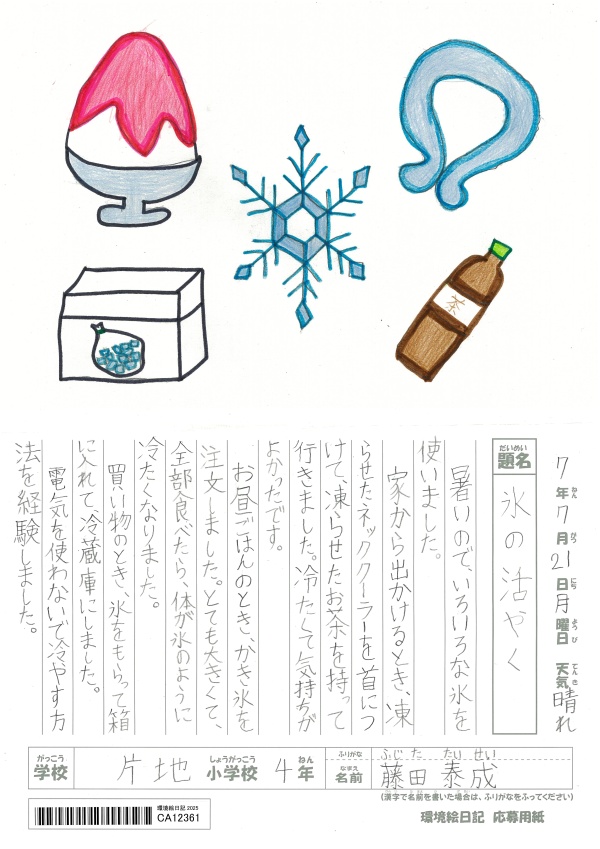 茶
7年7月21日月曜日 天気晴れ
ねん がつ にち ようび てんき
だいめい
題名
氷の活やく
暑いので、いろいろな氷を
使いました。
家から出かけるとき、凍
らせたネッククーラーを首につ
けて、凍らせたお茶を持って
行きました。冷たくて気持ちが
よかったです。
お昼ごはんのとき、かき氷を
注文しました。とても大きくて、
全部食べたら、体が氷のように
冷たくなりました。
買い物のとき、氷をもらって箱
に入れて、冷蔵庫にしました。
電気を使わないで冷やす方
法を経験しました。
がっこう しょうがっこう ねん
学校 片地 小学校 4年
ふりがな ふじ た たい せい
なまえ
名前 藤田 泰成
(漢字で名前を書いた場合は、ふりがなをふってください)
環境絵日記 2025
CA12361
環境絵日記 応募用紙